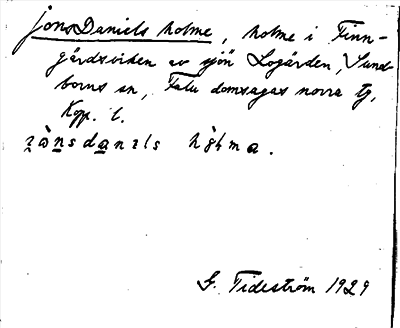 Jons Daniels holme, holme i Finn-
gårdsviken av sjön Logården, Sund-
borns sn, Falu domsagas norra tg,
Kopp. l.
G. Tideström 1929